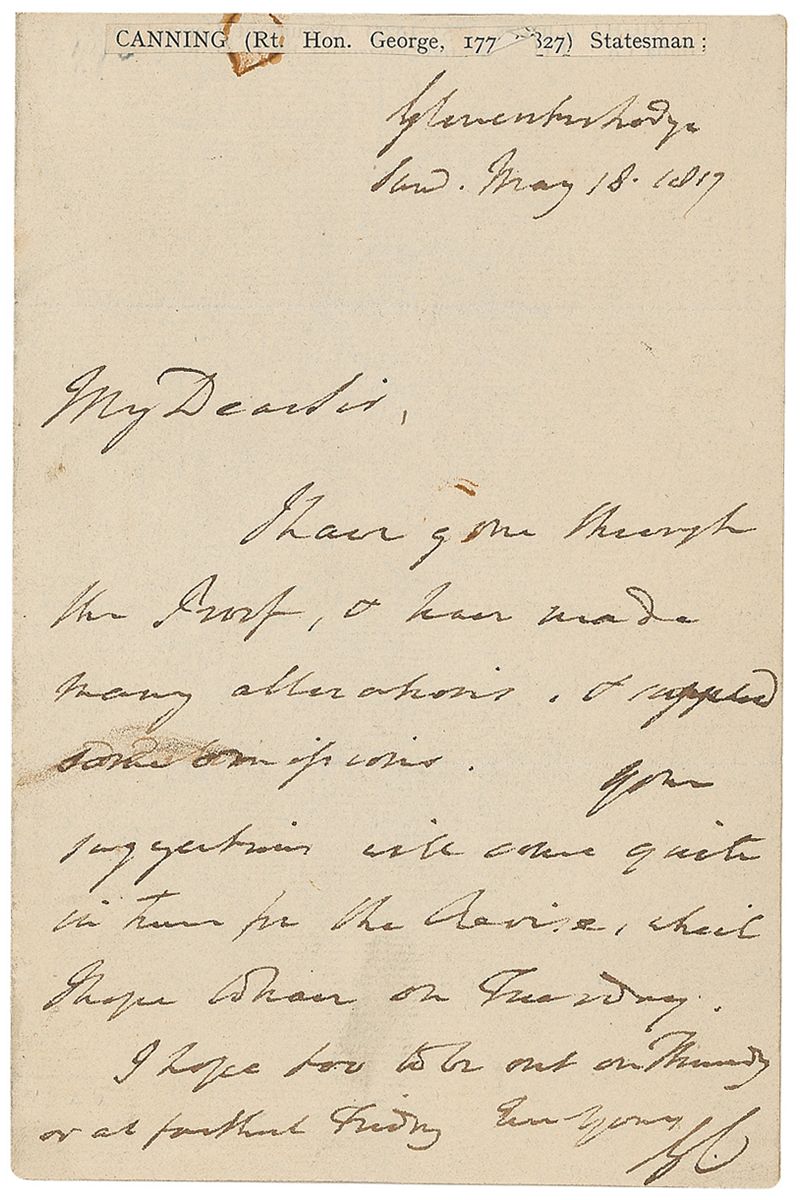 CANNING (Rt. Hon. George, 177 827) Statesman:
Gloucester Lodge
Sund. May 18. 1817
My Dear Sir,
I have gone through
the Proof, & have made
many alterations, & supplied
some omissions. Your
suggestions will come quite
in time for the Revise, which
I hope to have on Tuesday.
I hope too to be out on Thursday
or at farthest Friday Ever Yours
GC.